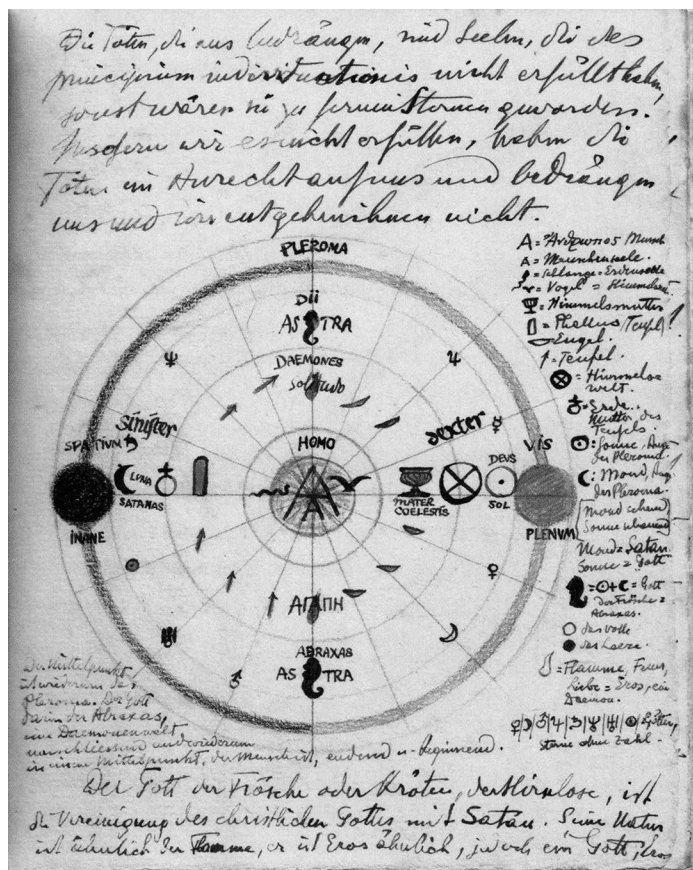 Die Toten, die uns bedrängen, sind Seelen, die das
principium individuationis nicht erfüllt haben,
sonst wären sie zu fernen Sternen geworden.
Insofern wir es nicht erfüllen, haben die
Toten ein Anrecht auf uns und bedrängen
uns und wir entgehen ihnen nicht.
PLEROMA
Dii
AS TRA
DAEMONES
Solitudo
sinister
dexter
SPATIUM
HOMO
VIS
DEUS
LUNA
A
SATANAS
MATER
COELESTIS
SOL
INANE
PLENUM
ΑΓΑΠΗ
ABRAXAS
AS TRA
A = Ἄνθρωπος Mensch
A = Menschenseele.
= Schlange = Erdenseele
= Vogel = Himmelsseele
= Himmelsmutter
= Phallus (Teufel)
= Engel.
= Teufel.
= Himmels
welt.
= Erde.
Mutter des
Teufels.
= Sonne, Auge
des Pleroma.
= Mond, Auge
des Pleroma.
Mond
Sonne
Mond = Satan
Sonne = Gott
= ☉ + ☾ = Gott
der Frösche =
Abraxas.
das Volle
das Leere.
= Flamme, Feuer,
Liebe = Eros, ein
Daemon.
Götter,
Sterne ohne Zahl.
Der Mittelpunkt
ist wiederum das
Pleroma. Der Gott
darin der Abraxas,
eine Daemonenwelt
umschliesst und wiederum
in einem Mittelpunkt, der Mensch ist, endend u. beginnend.
Der Gott der Frösche oder Kröten, der Hirnlose, ist
die Vereinigung des christlichen Gottes mit Satan. Seine Natur
ist ähnlich der Flamme, er ist Eros ähnlich, jedoch ein Gott, Eros